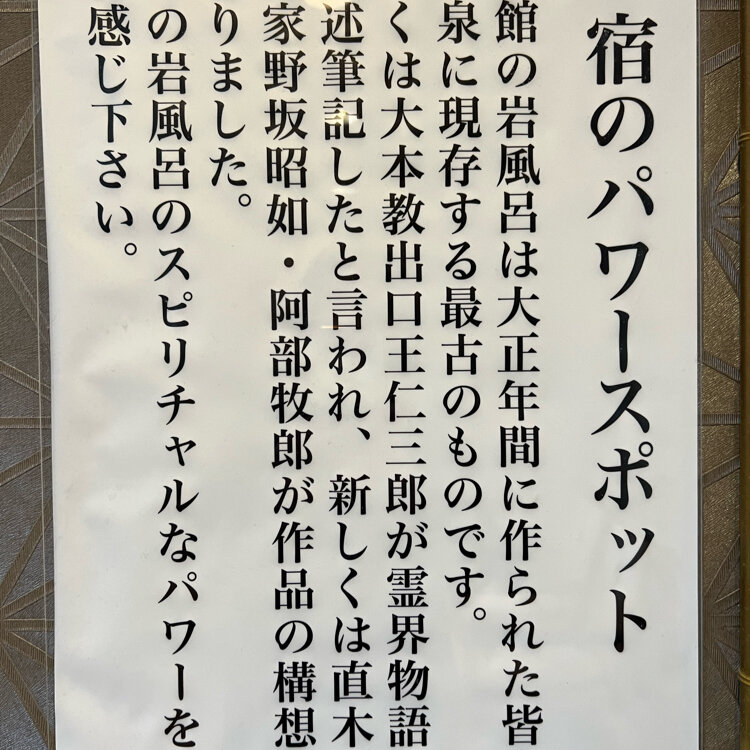 宿のパワースポット
館の岩風呂は大正年間に作られた皆
泉に現存する最古のものです。
くは大本教出口王仁三郎が霊界物語
述筆記したと言われ、新しくは直木
家野坂昭如・阿部牧郎が作品の構想
りました。
の岩風呂のスピリチャルなパワーを
感じ下さい。